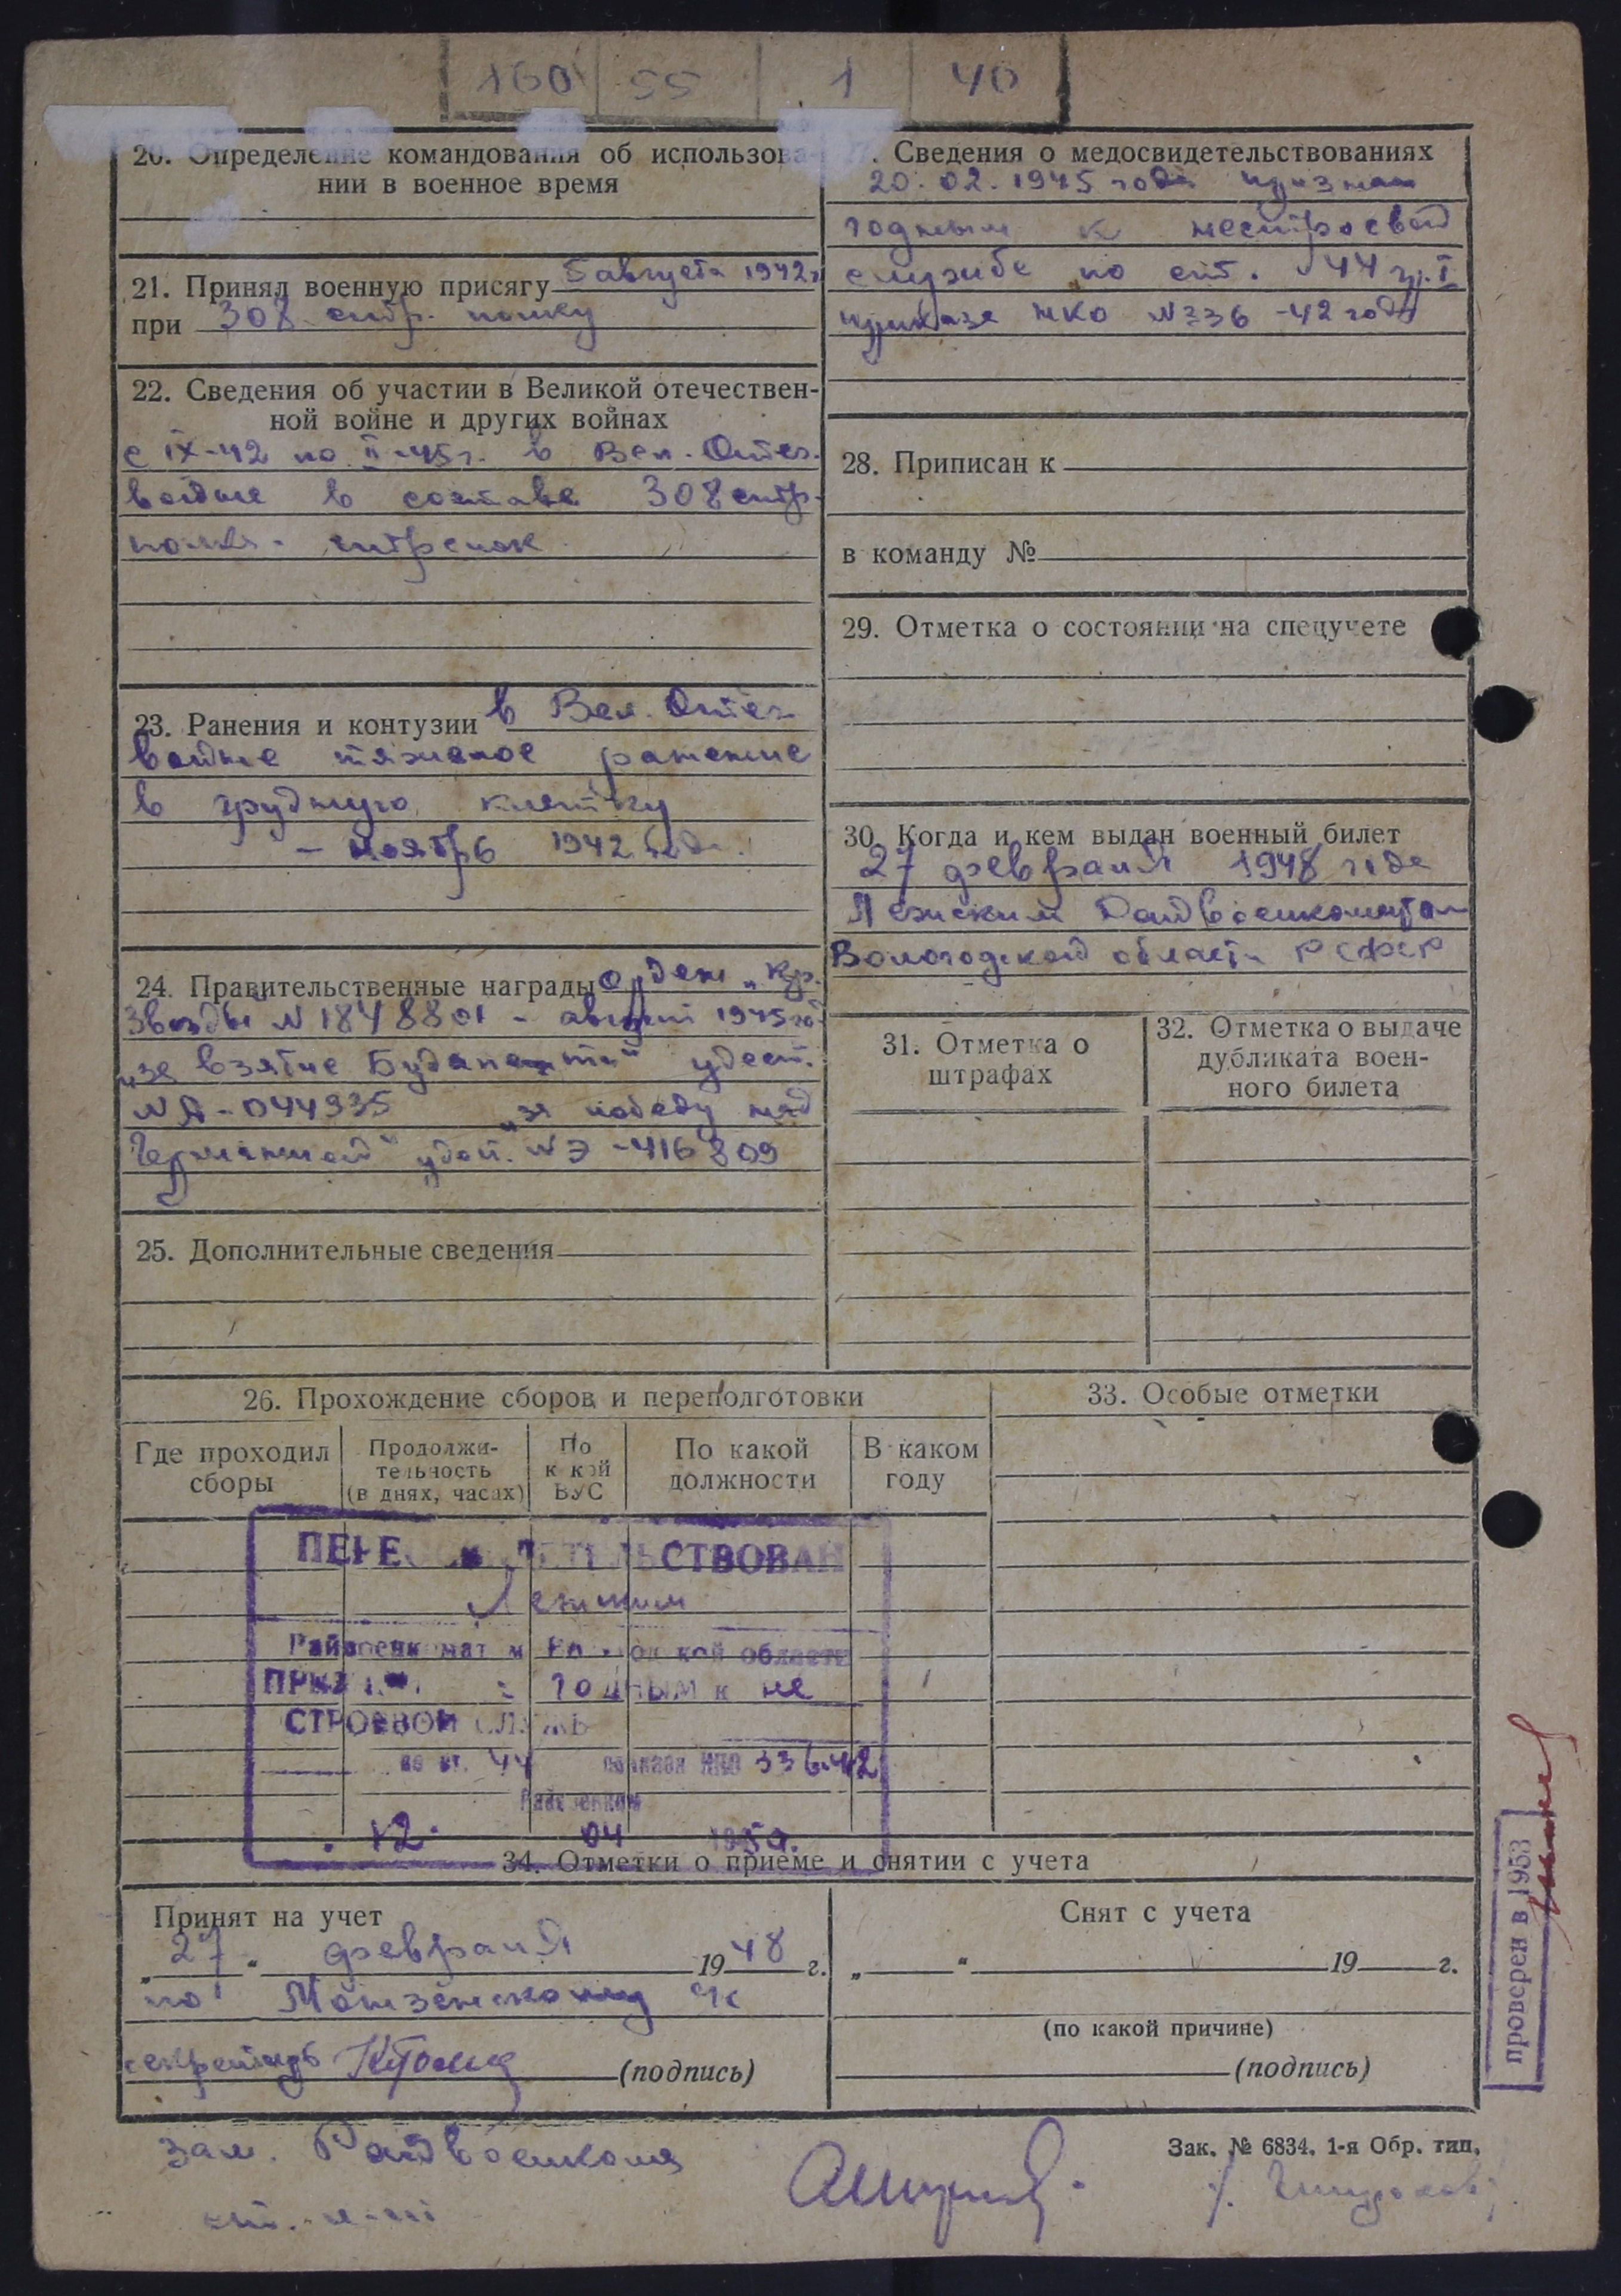 160 55 1 40
20. Определение командования об использова-
нии в военное время
21. Принял военную присягу 5 августа 1942 г
при 308 стр. полку
22. Сведения об участии в Великой отечествен-
ной войне и других войнах
с IX-42 по II-45 г. в Вел. Отеч.
войне в составе 308 стр.
полка - стрелок
23. Ранения и контузии в Вел. Отеч
войне тяжелое ранение
в грудную клетку
- ноябрь 1942 года.
24. Правительственные награды Орден „Кр.
Звезды" № 1848801 - август 1945 го
„за взятие Будапешта" удост.
№ А-044935 „за победу над
Германией" удост. № Э-416809
25. Дополнительные сведения
27. Сведения о медосвидетельствованиях
20.02.1945 года признан
годным к нестроевой
службе по ст. 44 гр. I
приказа НКО № 336-42 года
28. Приписан к
в команду №
29. Отметка о состоянии на спецучете
30. Когда и кем выдан военный билет
27 февраля 1948 года
Лежским Райвоенкоматом
Вологодской области РСФСР
31. Отметка о
штрафах
32. Отметка о выдаче
дубликата воен-
ного билета
26. Прохождение сборов и переподготовки
Где проходил
сборы
Продолжи-
тельность
(в днях, часах)
По
какой
ВУС
По какой
должности
В каком
году
33. Особые отметки
ПЕРЕОСВИДЕТЕЛЬСТВОВАН
Лежским
Райвоенкоматом Вологодской области
ПРИЗНАН годным к не
СТРОЕВОЙ СЛУЖБ
по ст. 44 приказа НКО 336-42
Райвоенком
12. 04 195
34. Отметки о приеме и снятии с учета
Принят на учет
„27" февраля 1948 г.
по
секретарь (подпись)
Снят с учета
„ " 19 г.
(по какой причине)
(подпись)
проверен в 1953
зам. Райвоенкома
Зак. № 6834. 1-я Обр. тип.